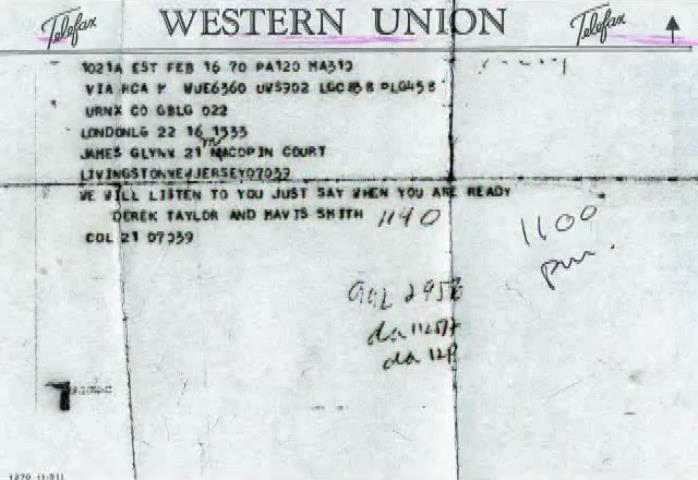 Telefax WESTERN UNION Telefax
1021A EST FEB 16 70 PA120 MA310
VIA RCA WUE6360 UWS902
URNX CO GBLG 022
LONDONLG 22 16 1533
JAMES GLYNN 21 MACOPIN COURT
LIVINGSTONNEWJERSEY07039
WE WILL LISTEN TO YOU JUST SAY WHEN YOU ARE READY
DEREK TAYLOR AND MAVIS SMITH 1140
COL 21 07039
1100
pm.
992 2958
da
da